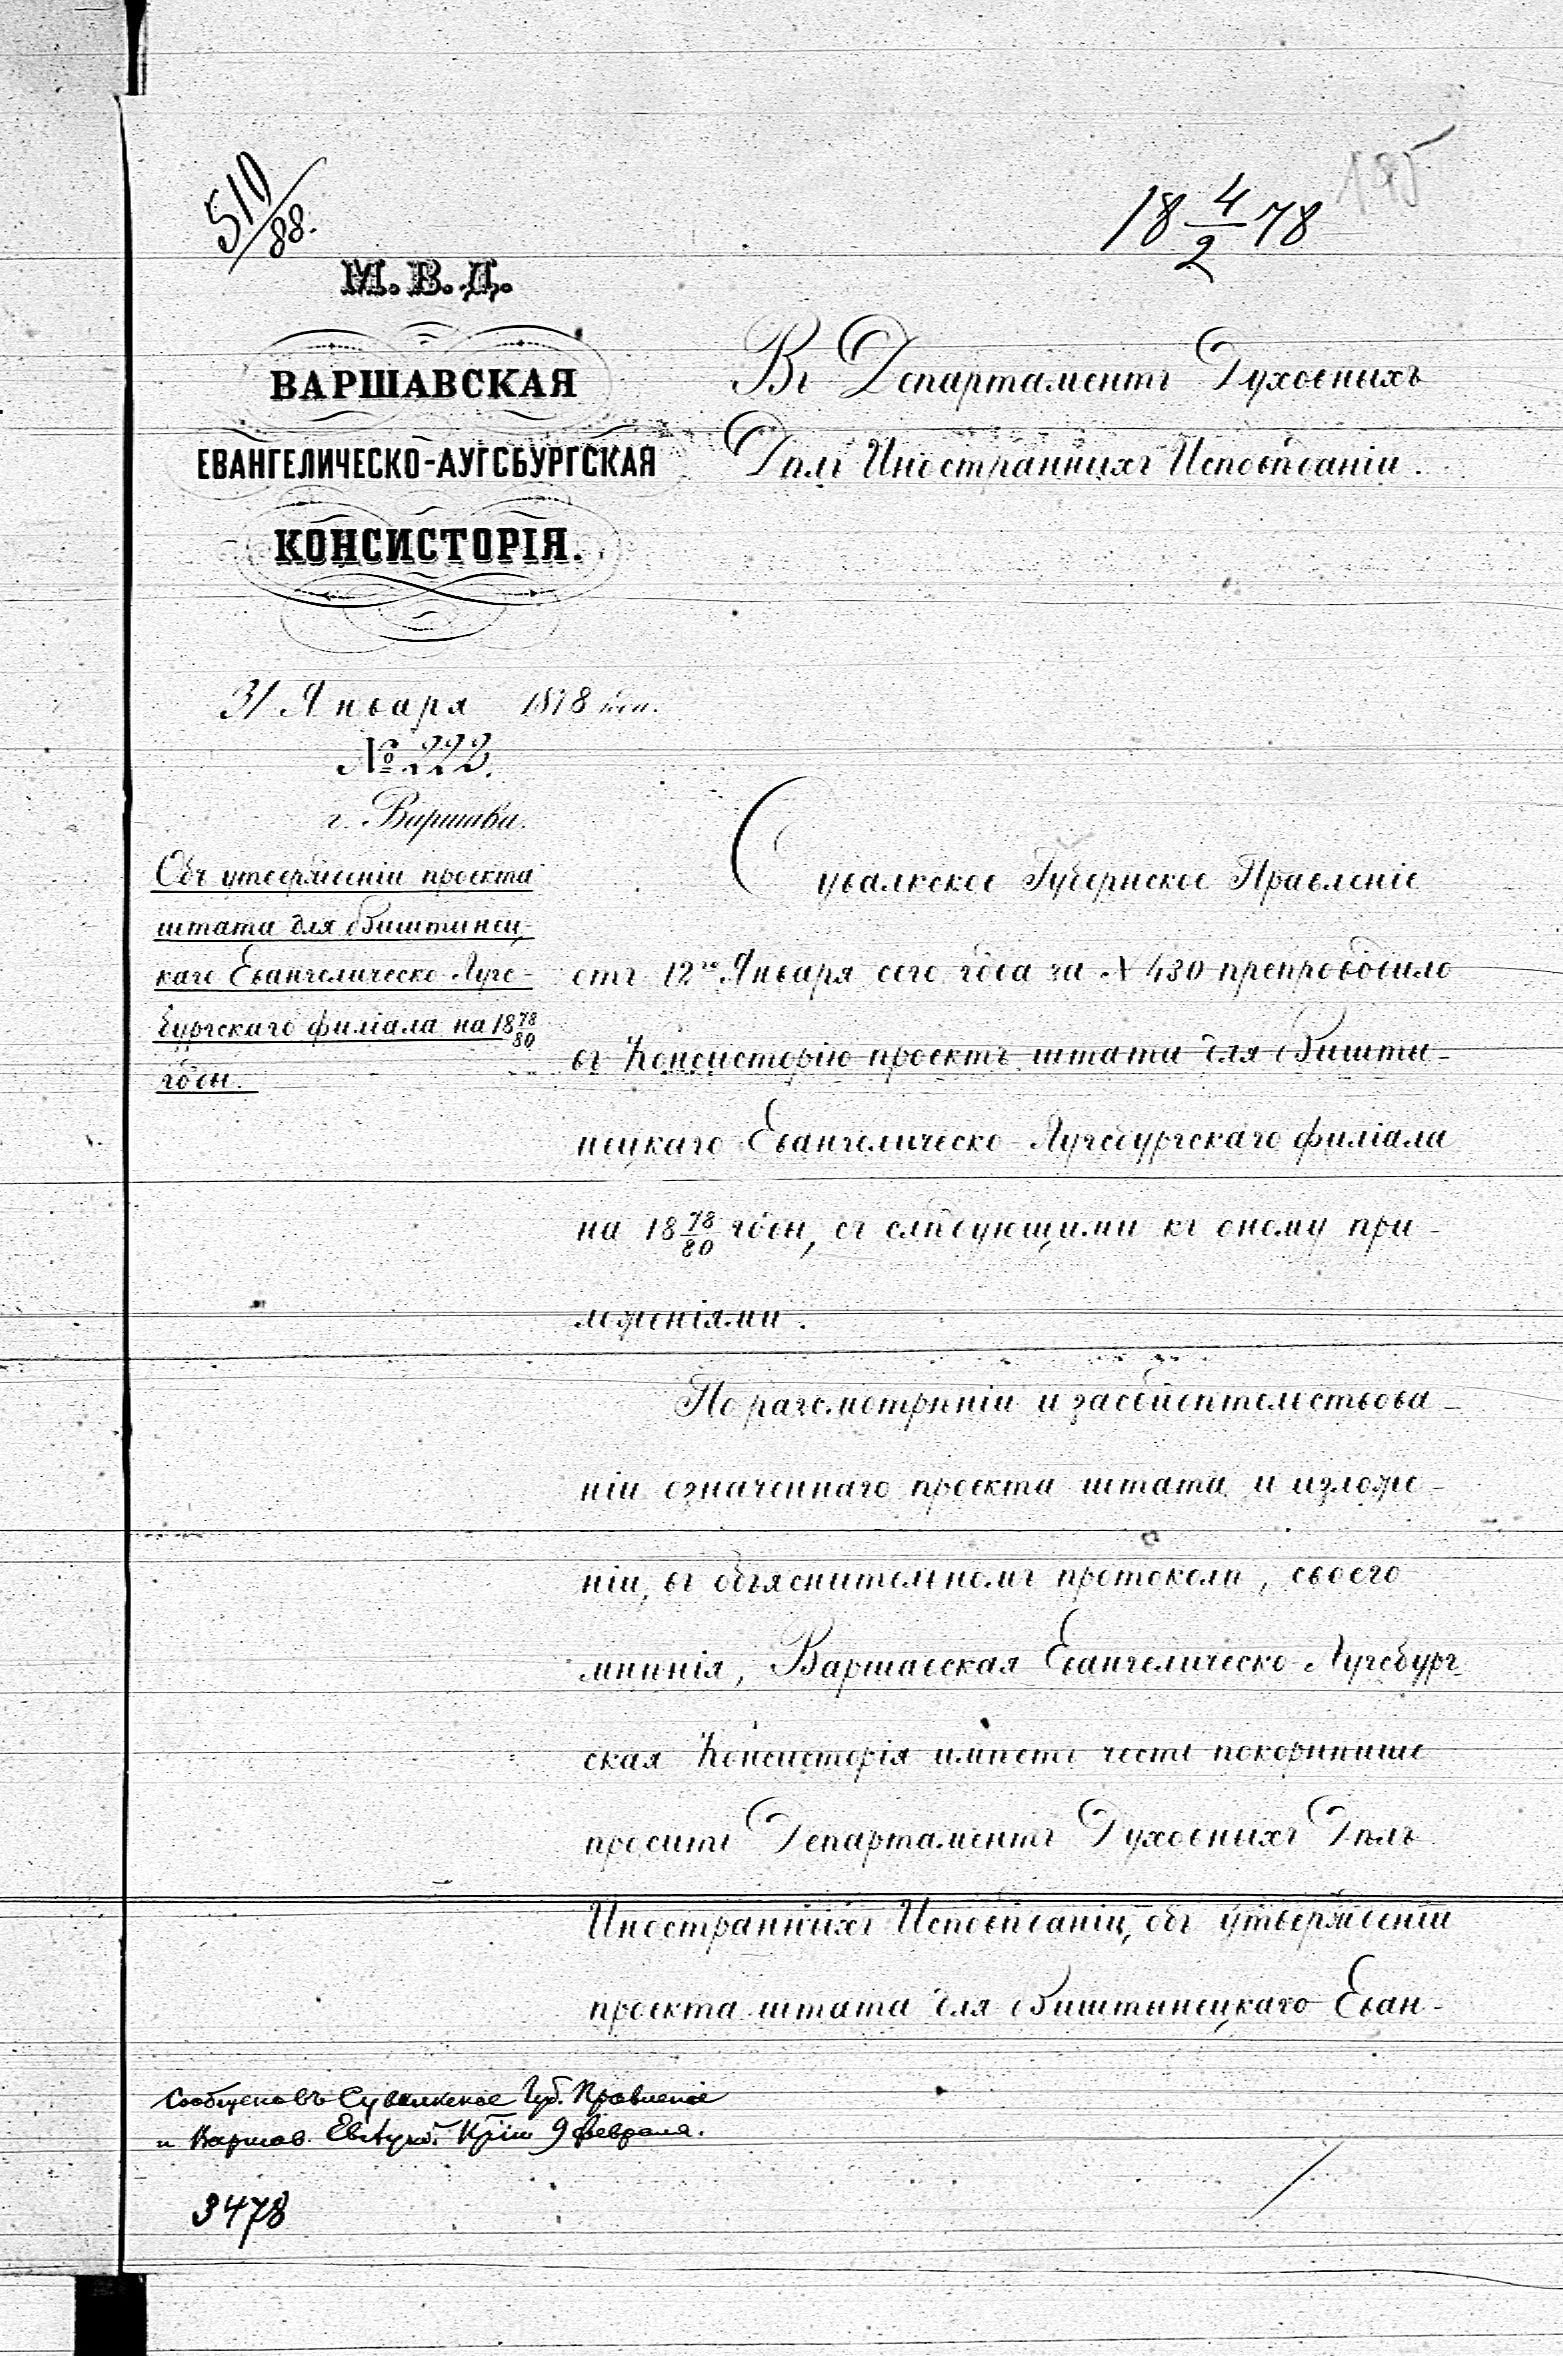 510/88.
18 4/2 78
195
М. В. Д.
ВАРШАВСКАЯ
ЕВАНГЕЛИЧЕСКО-АУГСБУРГСКАЯ
КОНСИСТОРІЯ.
31 Января 1878 года.
№ 222.
г. Варшава.
Объ утвержденіи проекта
штата для Виштынец-
каго Евангелическо-Аугс-
бургскаго филіала на 18 78/80
годы.
Въ Департаментъ Духовныхъ
Дѣлъ Иностранныхъ Исповѣданій.
Сувалкское Губернское Правленіе
отъ 12го Января сего года за N 430 препроводило
въ Консисторію проектъ штата для Вишты-
нецкаго Евангелическо-Аугсбургскаго филіала
на 18 78/80 годы, съ слѣдующими къ оному при-
ложеніями.
По разсмотрѣніи и засвидѣтельствова-
ніи означеннаго проекта штата и изложе-
ніи, въ объяснительномъ протоколѣ, своего
мнѣнія, Варшавская Евангелическо-Аугсбург-
ская Консисторія имѣетъ честь покорнѣйше
просить Департаментъ Духовныхъ Дѣлъ
Иностранныхъ Исповѣданій, объ утвержденіи
проекта штата для Виштынецкаго Еван-
Сообщено въ Сувалкское Губ. Правленіе
и Варшав. Ев. Аугсб. 9 февраля.
3478